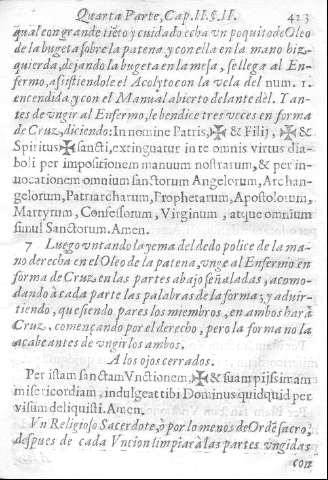 Quarta Parte, Cap. II. §. II. 423
qual con grande tiẽto y cuidado echa vn poquito de Oleo
de la bugeta sobre la patena y con ella en la mano biz-
quierda, dejando la bugeta en la mesa, se llega al En-
fermo, asistiendole el Acolyto con la vela del num. 1.
encendida y con el Manual abierto delante dél. Y an-
tes de vngir al Enfermo, le bendice tres veces en forma
de Cruz, diciendo: In nomine Patris, ✠ & Filij, ✠ &
Spiritus ✠ sancti, extinguatur in te omnis virtus dia-
boli per impositionem manuum nostrarum, & per in-
uocationem omnium sanctorum Angelorum, Archan-
gelorum, Patriarcharum, Prophetarum, Apostolorum,
Martyrum, Confessorum, Virginum, atque omnium
simul Sanctorum. Amen.
7 Luego vntando la yema del dedo police de la ma-
no derecha en el Oleo de la patena, vnge al Enfermo en
forma de Cruz en las partes abajo señaladas, acomo-
dando à cada parte las palabras de la forma; y aduir-
tiendo, que siendo pares los miembros, en ambos hará
Cruz, començando por el derecho, pero la forma no la
acabe antes de vngir los ambos.
A los ojos cerrados.
Per istam sanctam Vnctionem, ✠ & suam pijssimam
misericordiam, indulgeat tibi Dominus quidquid per
visum deliquisti. Amen.
Vn Religioso Sacerdote, ò por lo menos de Ordẽ sacro,
despues de cada Vncion limpiará las partes vngidas
con